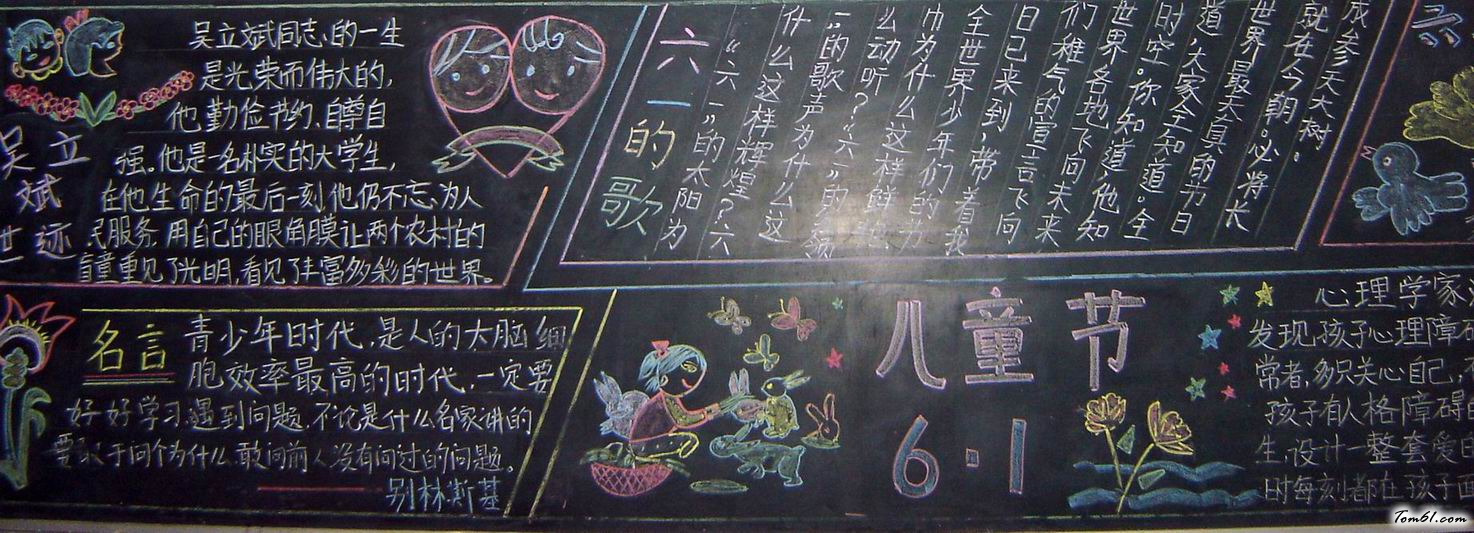 吴立斌世迹
吴立斌同志的一生
是光荣而伟大的,
他勤俭节约、自尊自
强。他是一名朴实的大学生,
在他生命的最后一刻他仍不忘为人
民服务,用自己的眼角膜让两个农村的
盲童重见了光明,看见了丰富多彩的世界。
六一的歌
“六一”的太阳为
什么这样辉煌?“六
一”的歌声为什么这
么动听?“六一”的领
巾为什么这样鲜艳
全世界少年们的节
日已来到,带着我
们稚气的宣言飞向
世界各地飞向未来
时空。你知道,他知
道,大家全知道。全
世界最天真的节日
就在今朝。必将长
成参天大树。
名言
青少年时代,是人的大脑细
胞效率最高的时代,一定要
好好学习,遇到问题,不论是什么名家讲的
要敢于问个为什么,敢问前人没有问过的问题。
别林斯基
儿童节
6·1
心理学家
发现,孩子心理障碍
常者,多只关心自己,不
孩子有人格障碍的
生,设计一整套爱的
时每刻都在孩子面
Tom61.com